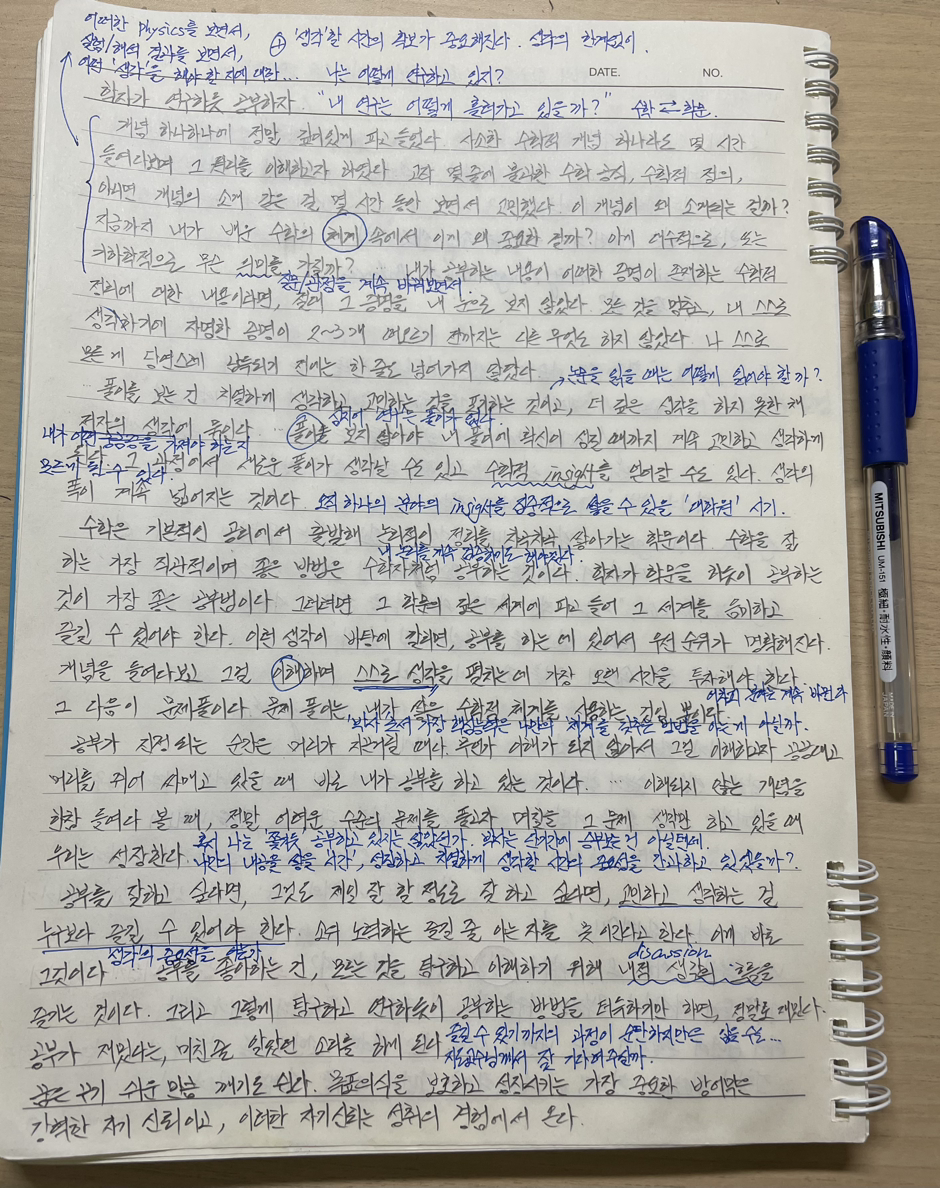 어떠한 physics를 보면서,
실험/해석 결과를 보면서,
어떤 '생각'을 해야 할 지에 대한...
⊕ '생각'할 시간의 확보가 중요해진다. 생각의 한계없이.
나는 어떻게 연구하고 있지?
DATE. NO.
학자가 연구하듯 공부하자. "내 연구는 어떻게 흘러가고 있을까?" 수학 ⇄ 학문.
개념 하나하나에 정말 깊이있게 파고 들었다. 사소한 수학적 개념 하나라도 몇 시간
들여다보며 그 원리를 이해하고자 하였다. 고작 몇 줄에 불과한 수학 공식, 수학적 정의,
아니면 개념의 소개 같은 걸 몇 시간 동안 보면서 고민했다. 이 개념이 왜 소개되는 걸까?
지금까지 내가 배운 수학의 체계 속에서 이게 왜 중요한 걸까? 이게 대수적으로, 또는
기하학적으로 무슨 의미를 가질까? ... 내가 공부하는 내용이 어떠한 증명이 존재하는 수학적
질문/관점을 계속 바꿔보면서.
정리에 대한 내용이라면, 절대 그 증명을 내 눈으로 보지 않았다. 모든 것을 멈추고, 내 스스로
생각하기에 자명한 증명이 2~3개 떠오르기 전까지는 다른 무엇도 하지 않았다. 나 스스로
모든 게 당연스레 납득되기 전에는 한 줄도 넘어가지 않았다.
→ 논문을 읽을 때는 어떻게 읽어야 할까?
... 풀이를 보는 건 치열하게 생각하고 고민하는 것을 포기하는 것이고, 더 깊은 생각을 하지 못한 채
심지어 연구는 풀이가 없다.
저자의 생각에 묶인다. ... 풀이를 보지 않아야 내 풀이에 확신이 생길 때까지 계속 고민하고 생각하게
내가 어떤 궁금증을 가져야 하는지
모르게 될 수 있다.
된다. 그 과정에서 새로운 풀이가 생각날 수도 있고 수학적 insight를 얻어갈 수도 있다. 생각의
폭이 계속 넓어지는 것이다. 오직 하나의 분야의 insight를 집중적으로 쌓을 수 있을 '대학원' 시기.
수학은 기본적인 공리에서 출발해 논리적인 정리를 차곡차곡 쌓아가는 학문이다. 수학을 잘
내 논리를 계속 검증해야도 해야한다.
하는 가장 직관적이며 좋은 방법은 수학자처럼 공부하는 것이다. 학자가 학문을 하듯이 공부하는
것이 가장 좋은 공부법이다. 그러려면 그 학문의 깊은 세계에 파고 들어 그 세계를 음미하고
즐길 수 있어야 한다. 이런 생각이 바탕에 깔리면 공부를 하는 데 있어서 우선 순위가 명확해진다.
개념을 들여다보고 그걸 이해하며 스스로 생각을 펼치는 데 가장 오랜 시간을 투자해야 한다.
어차피 문제는 계속 바뀐다
그 다음이 문제풀이다. 문제 풀이는, 내가 쌓은 수학적 체계를 사용하는 것일 뿐이다.
박사로서 가장 핵심능력은 나만의 체계를 갖추는 방법을 아는 게 아닐까.
공부가 진정 되는 순간은 머리가 지끈거릴 때다. 무언가 이해가 되지 않아서 그걸 이해하고자 끙끙대고
머리를 쥐어 싸매고 있을 때 바로 내가 공부를 하고 있는 것이다. ... 이해되지 않는 개념을
한참 들여다 볼 때, 정말 어려운 수준의 문제를 풀고자 며칠을 그 문제 생각만 하고 있을 때
우리는 성장한다.
혹시 나는 쫓겨듯 공부하고 있지는 않았던가. 박사는 단기간에 승부보는 건 아닐텐데.
나만의 내용을 쌓을 시간, 성장하고 치열하게 생각할 시간의 중요성을 간과하고 있었을까?
공부를 잘하고 싶다면, 그것도 제일 잘 할 정도로 잘 하고 싶다면, 고민하고 생각하는 걸
누구보다 즐길 수 있어야 한다. 소위 노력하는 즐길 줄 아는 자를 못 이긴다고 한다. 이게 바로
'생각'의 중요성을
discussion
그것이다. 공부를 좋아하는 건, 모르는 것을 탐구하고 이해하기 위해 내적 생각의 흐름을
즐기는 것이다. 그리고 그렇게 탐구하고 연구하듯이 공부하는 방법을 터득하기만 하면, 정말로 재밌다.
공부가 재밌다는, 미친 줄 알았던 소리를 하게 된다.
즐길 수 있기까지의 과정이 순탄하지만은 않을 수도...
지도교수님께서 잘 기다려주실까.
꿈은 꾸기 쉬운 만큼 깨기도 쉽다. 목표의식을 보호하고 성장시키는 가장 중요한 방어막은
강력한 자기 신뢰이고, 이러한 자기신뢰는 성취의 경험에서 온다.
MITSUBISHI UM-151 極細・耐水性・顔料
MADE IN JAPAN